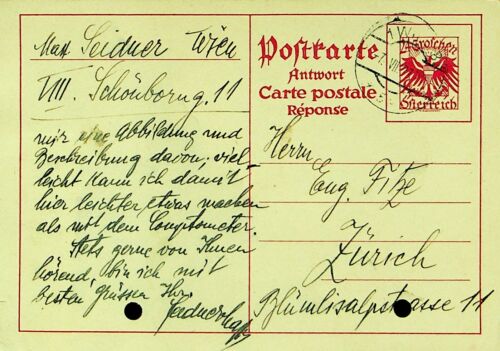 Max Seidner Wien
VIII. Schönborng. 11
mir eine Abbildung und
Beschreibung davon; viel-
leicht kann ich damit
hier leichter etwas machen
als mit dem Comptometer.
Stets gerne von Ihnen
hörend, bin ich mit
besten Grüssen Ihr
Postkarte
Antwort
Carte postale
Réponse
Groschen
Österreich
Herrn
Eug. Fitze
Zürich
Blümlisalpstrasse 11